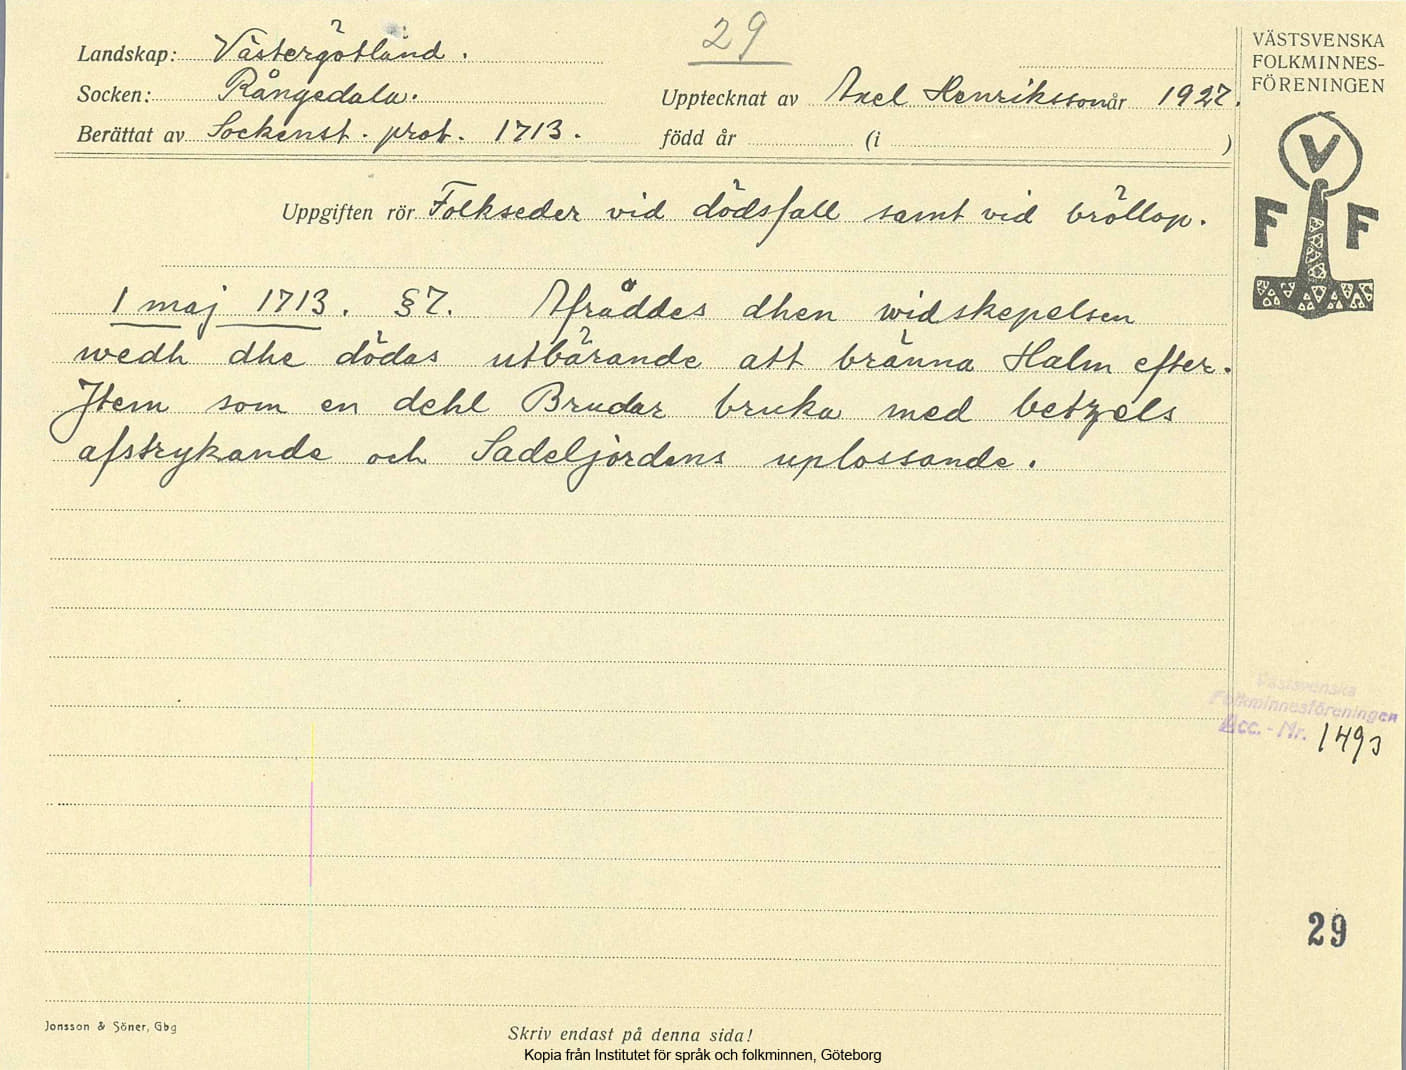 29
Landskap: Västergötland.
Socken: Rångedala.
Upptecknat av Axel Henriksson år 1927.
Berättat av Sockenst. prot. 1713.
född år (i )
Uppgiften rör Folkseder vid dödsfall samt vid bröllop.
1 maj 1713. §7. Afråddes dhen widskepelsen
wedh dhe dödas utbärande att bränna Halm efter.
Item som en dehl Brudar bruka med betzels
afstrykande och Sadeljordens uplossande.
VÄSTSVENSKA
FOLKMINNES-
FÖRENINGEN
V
F F
Västsvenska
Folkminnesföreningen
Acc. - Nr. 1493
29
Jonsson & Söner, Gbg
Skriv endast på denna sida!
Kopia från Institutet för språk och folkminnen, Göteborg